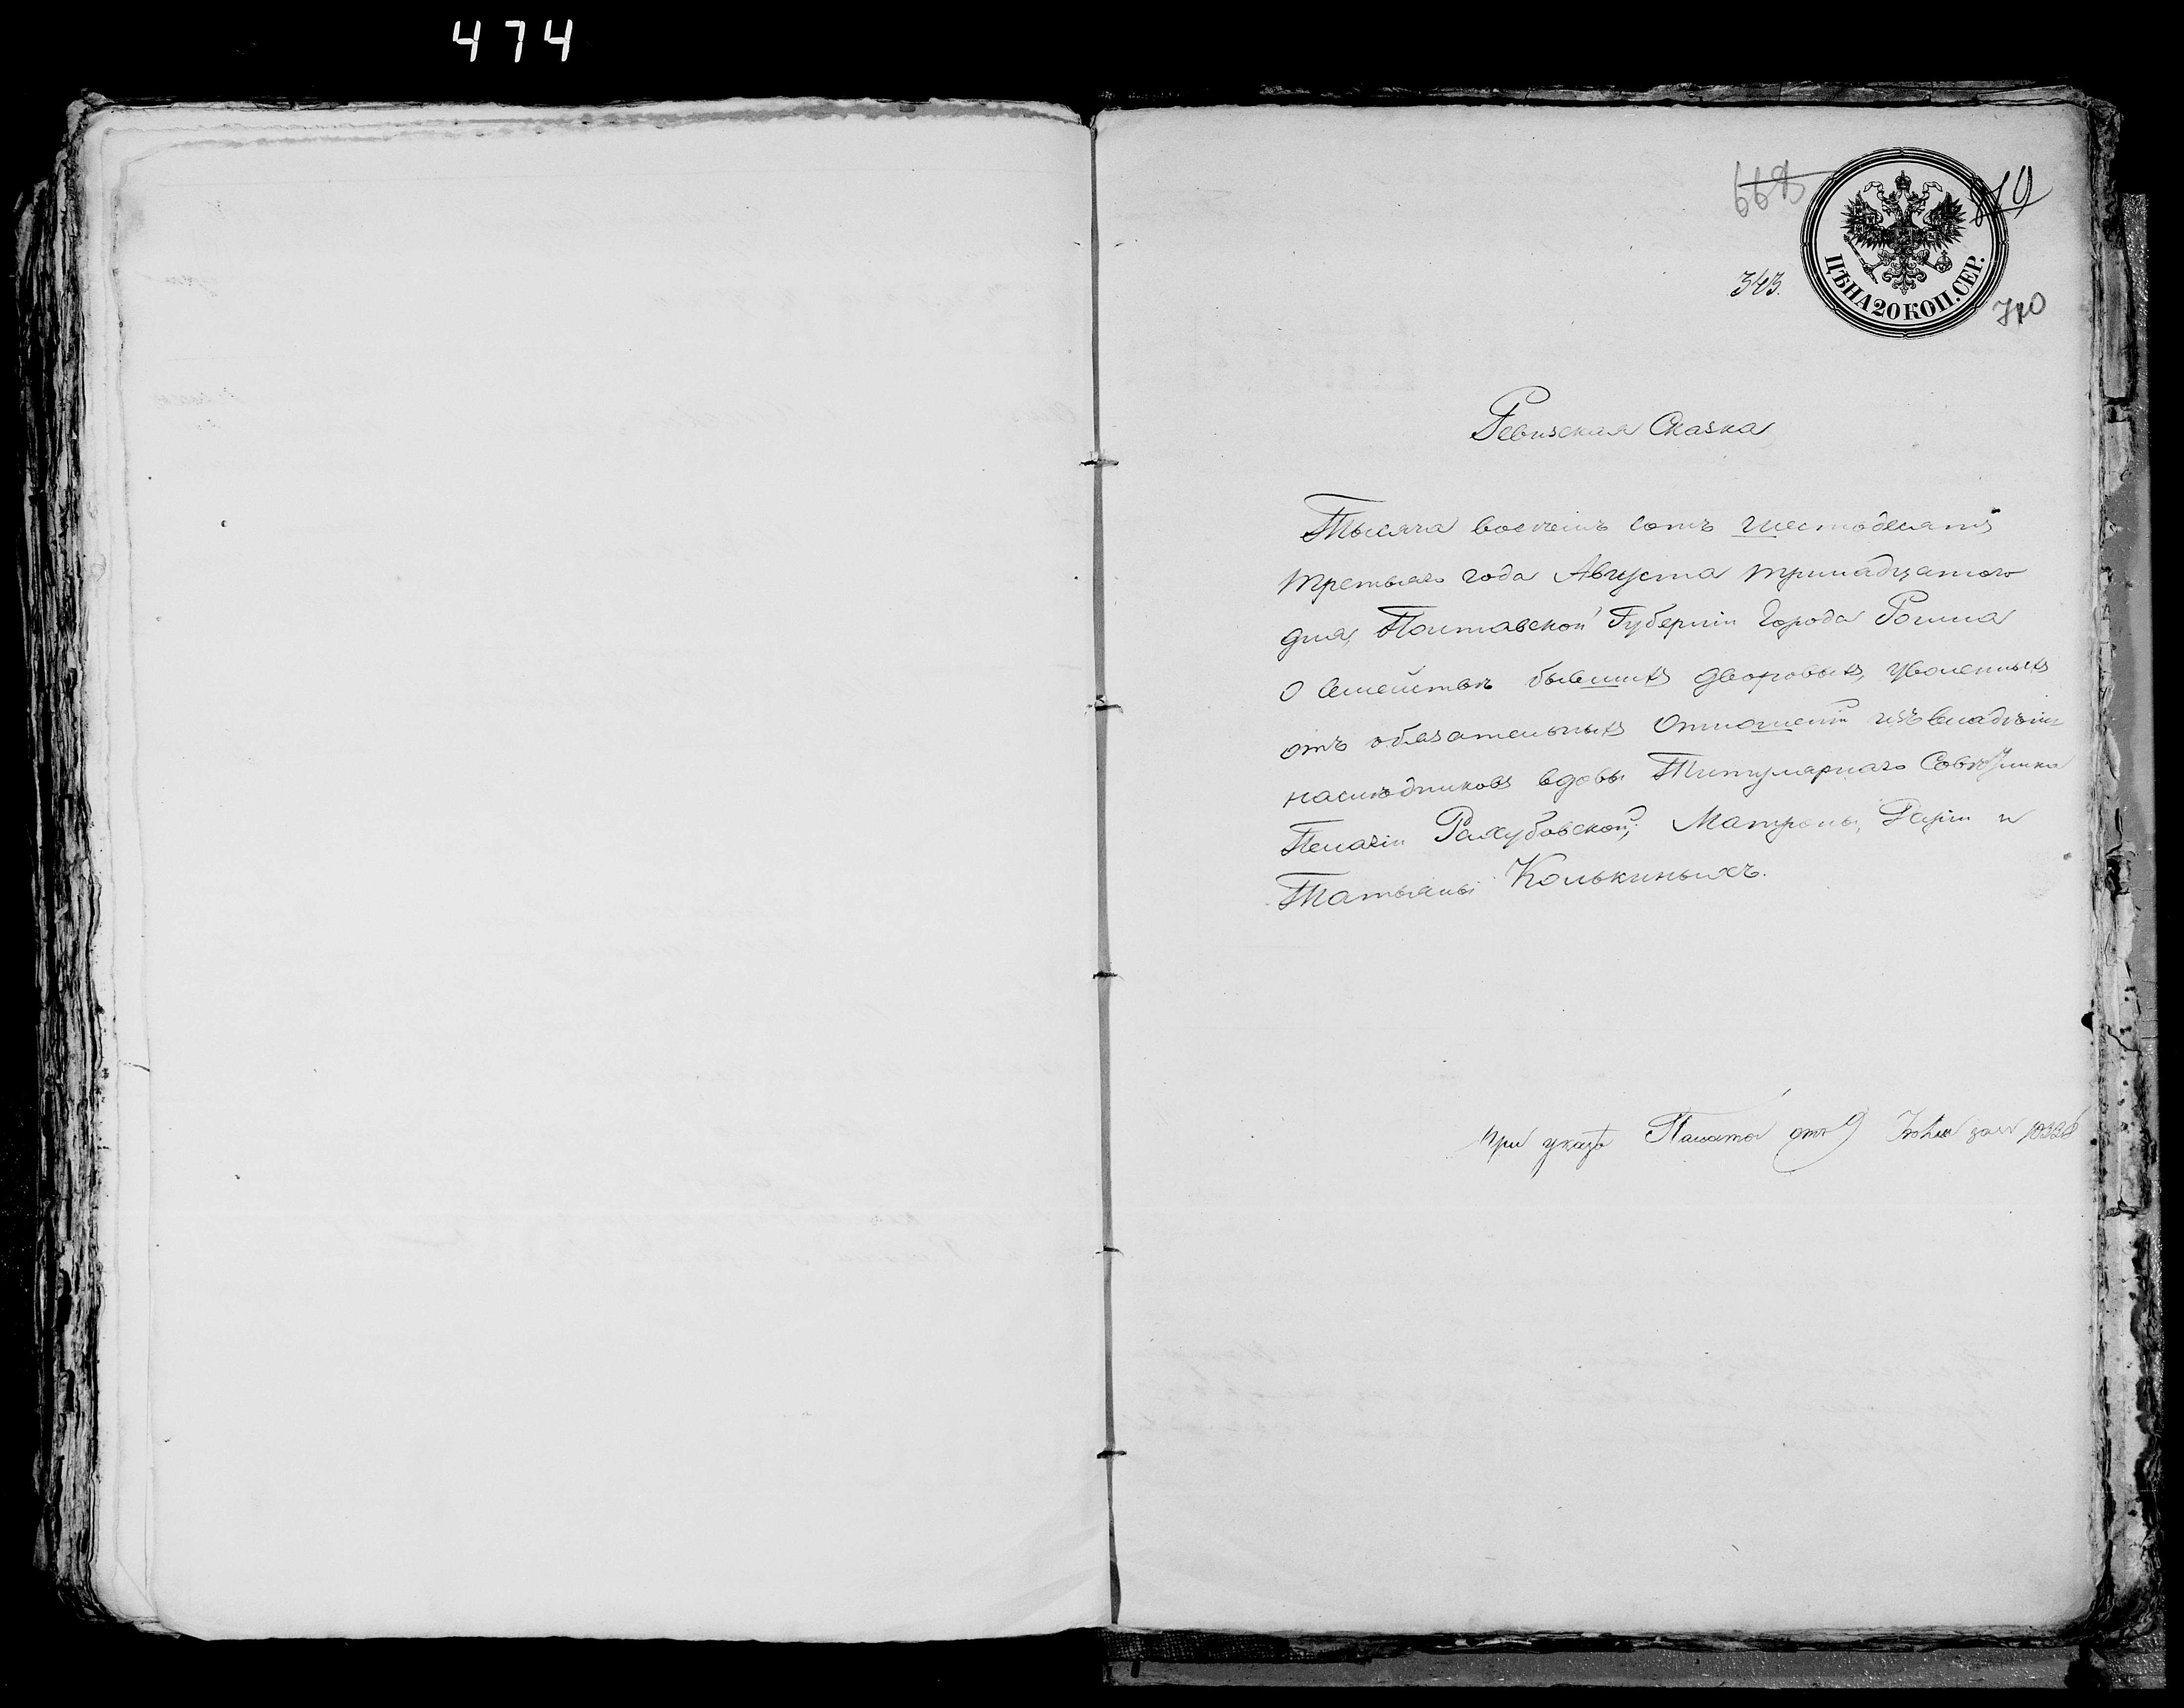 474
668
819
343.
ЦѢНА 20 КОП. СЕР.
710
Ревизская Сказка
Тысяча восемь сотъ шестьдесятъ
третьяго года Августа тринадцатого
дня, Полтавской Губерніи Города Ромна
О семействѣ бывшихъ дворовыхъ, уволенныхъ
отъ обязательныхъ отношеній изъ владѣнія
наслѣдниковъ вдовы Титулярнаго Совѣтника
Пелагіи Рахубовской; Матроны, Дарiи и
Татьяны Колькиныхъ.
при указѣ Палаты отъ 9 Іюля за № 10328